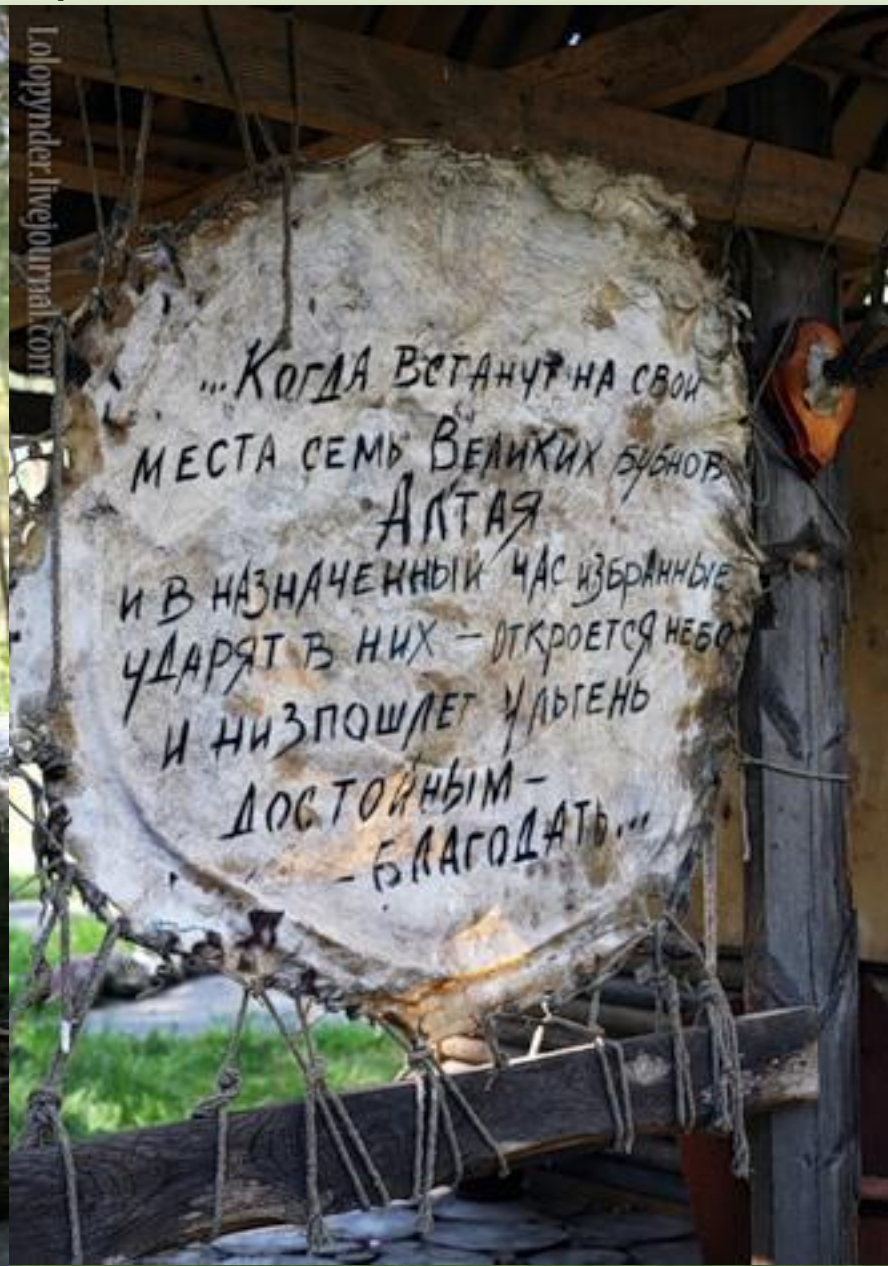 Lolopynder.livejournal.com
...Когда встанут на свои
места семь Великих бубнов
Алтая
и в назначенный час избранные
ударят в них – откроется небо
и низпошлет Ульгень
достойным –
– благодать...